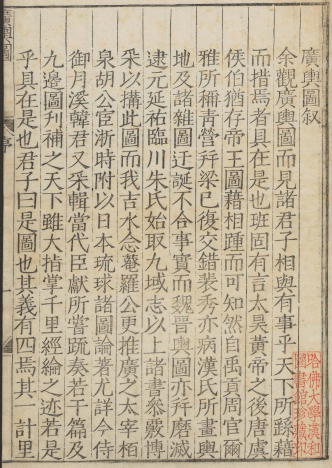 廣輿圖叙
余觀廣輿圖而見諸君子相與有事乎天下所繇藉
而措焉者具在是也班固有言太昊黄帝之後唐虞
侯伯猶存帝王圖藉相踵而可知然自禹貢周官爾
雅所稱青營幷梁已復交錯裴秀亦病漢氏所畫輿
地及諸雜圖迂誕不合事實而魏晋輿圖亦幷磨滅
逮元延祐臨川朱氏始取九域志以上諸書叅覈博
采以搆此圖而我吉水念菴羅公更推廣之太宰栢
泉胡公宦浙時附以日本琉球諸圖論者尤詳今侍
御月溪韓君又采輯當代臣獻所嘗疏奏若干篇及
九邊圖刋補之天下雖大指掌千里經綸之迹若是
乎具在是也君子曰是圖也其義有四焉其 計里
哈佛大學漢和
圖書館珍藏印